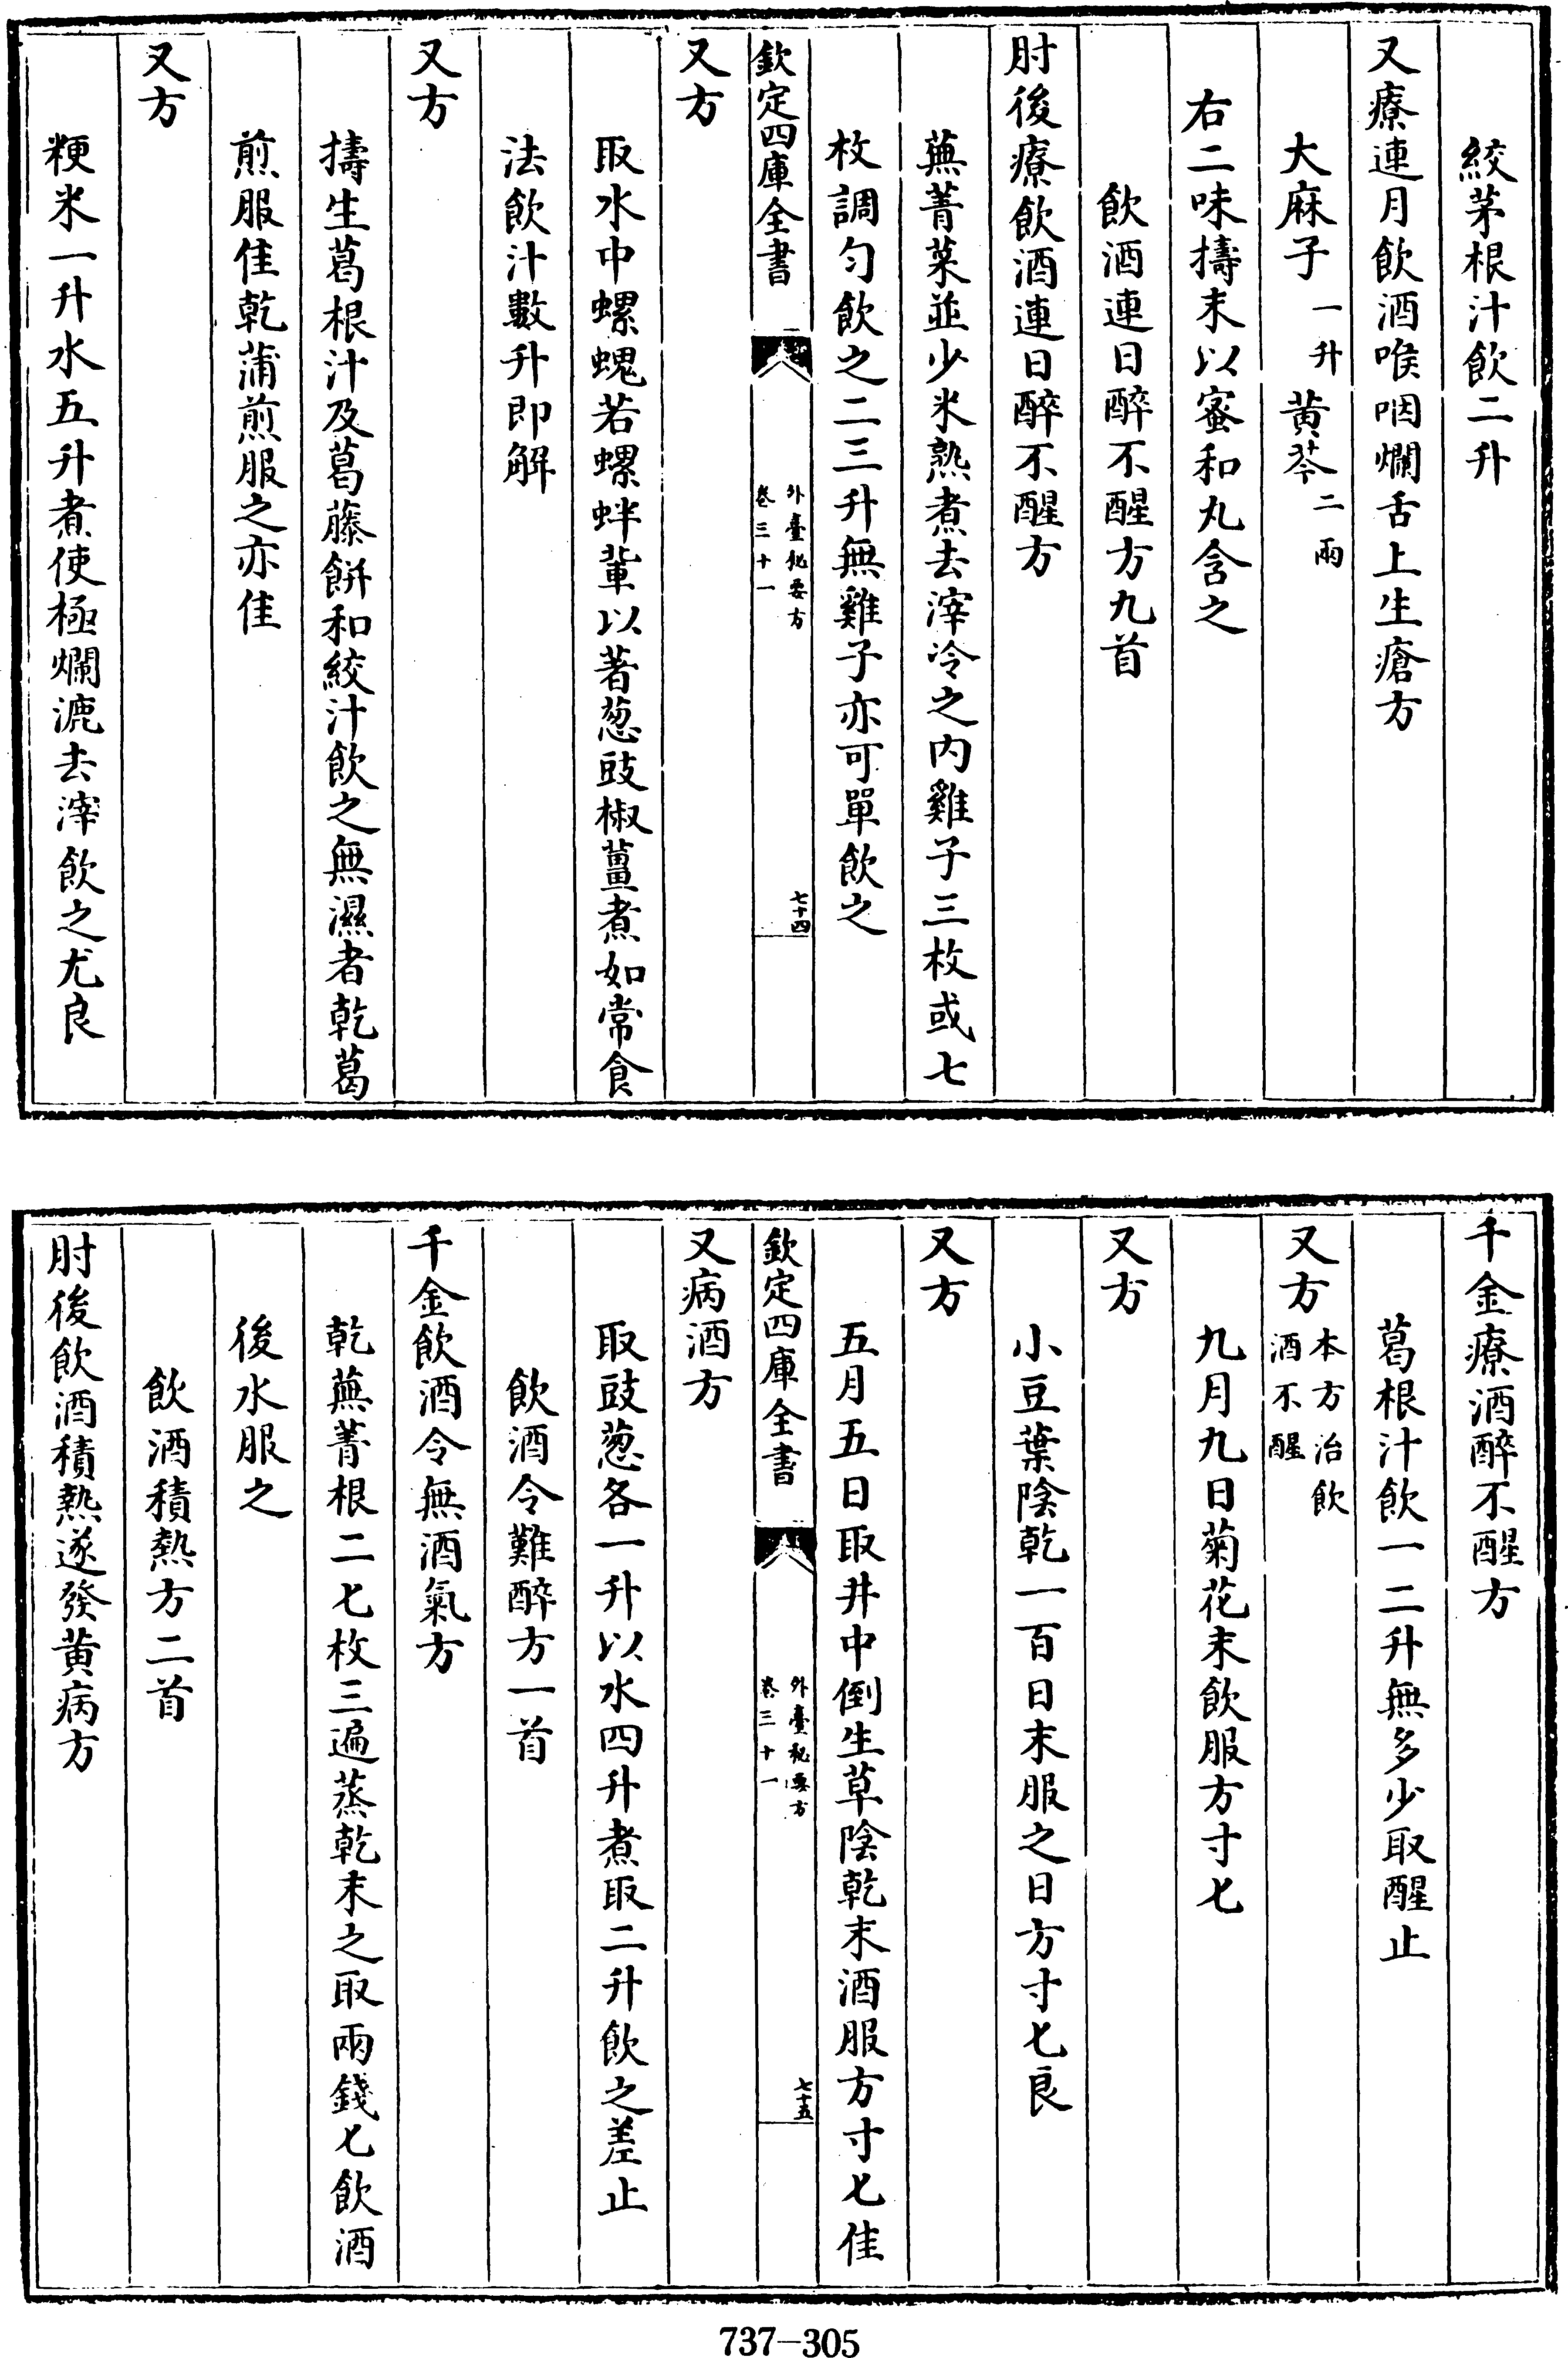 絞茅根汁飲二升
又療連月飲酒喉咽爛舌上生瘡方
大麻子一升 黄芩二兩
右二味擣末以蜜和丸含之
飲酒連日醉不醒方九首
肘後療飲酒連日醉不醒方
蕪菁菜並少米熟煮去滓冷之内雞子三枚或七
枚調匀飲之二三升無雞子亦可單飲之
欽定四庫全書
外臺秘要方
卷三十一
七十四
又方
取水中螺蜆若螺蚌軰以著葱豉椒薑煮如常食
法飲汁數升即解
又方
擣生葛根汁及葛藤餅和絞汁飲之無濕者乾葛
煎服佳乾蒲煎服之亦佳
又方
粳米一升水五升煮使極爛漉去滓飲之尤良
千金療酒醉不醒方
葛根汁飲一二升無多少取醒止
又方本方治飲
酒不醒
九月九日菊花末飲服方寸匕
又方
小豆葉陰乾一百日末服之日方寸匕良
又方
五月五日取井中倒生草陰乾末酒服方寸匕佳
欽定四庫全書
外臺秘要方
卷三十一
七十五
又病酒方
取豉葱各一升以水四升煮取二升飲之差止
飲酒令難醉方一首
千金飲酒令無酒氣方
乾蕪菁根二七枚三遍蒸乾末之取兩錢匕飲酒
後水服之
飲酒積熱方二首
肘後飲酒積熱遂發黄病方
737-305